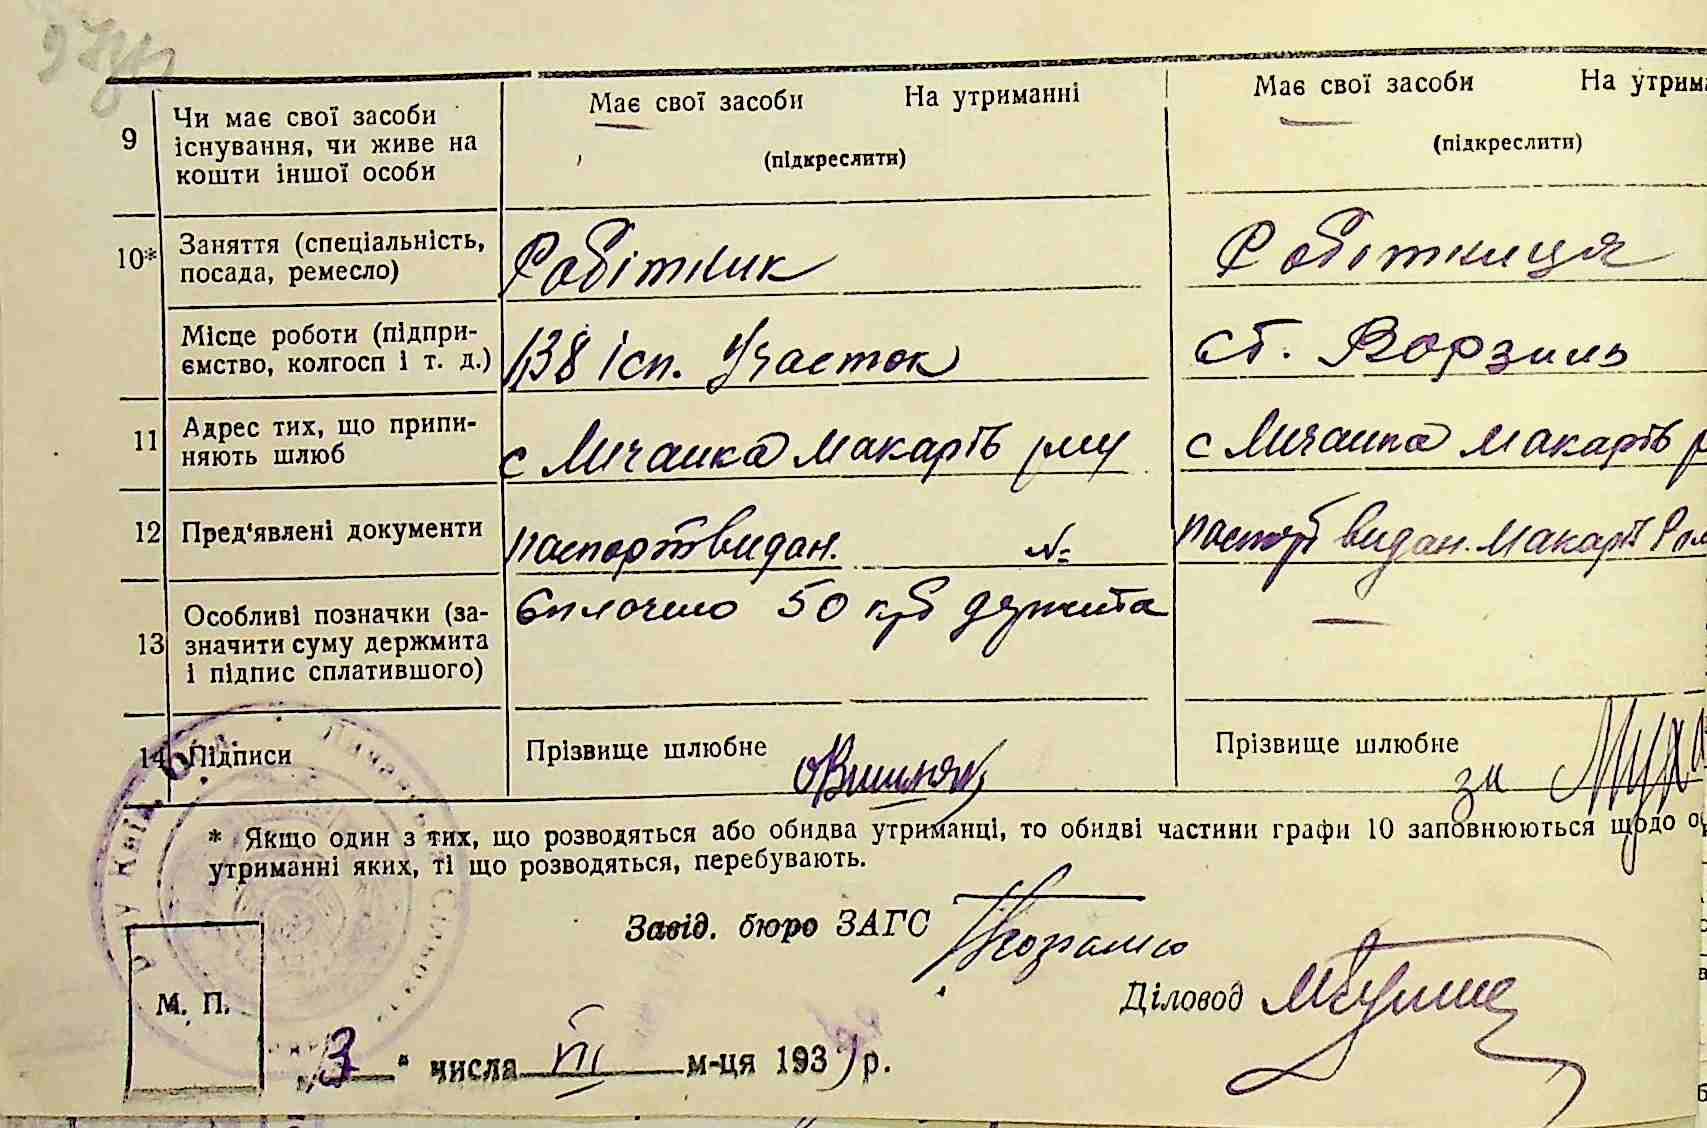 9 Чи має свої засоби існування, чи живе на кошти іншої особи
Має свої засоби На утриманні
(підкреслити)
Має свої засоби На утрим
(підкреслити)
10* Заняття (спеціальність, посада, ремесло)
Робітник
Робітниця
Місце роботи (підприємство, колгосп і т. д.)
138 ісп. Участок
ст. Ворзиль
11 Адрес тих, що припиняють шлюб
с Личанка Макарів р
с Личанка Макарів р
12 Пред'явлені документи
паспорт видан. №
паспорт видан. Макарів
13 Особливі позначки (зазначити суму держмита і підпис сплатившого)
Сплочено 50 крб держмита
14 Підписи
Прізвище шлюбне
Прізвище шлюбне
за
* Якщо один з тих, що розводяться або обидва утриманці, то обидві частини графи 10 заповнюються щодо о
утриманні яких, ті що розводяться, перебувають.
Завід. бюро ЗАГС
Діловод
М. П.
13 " числа VII м-ця 1939 р.